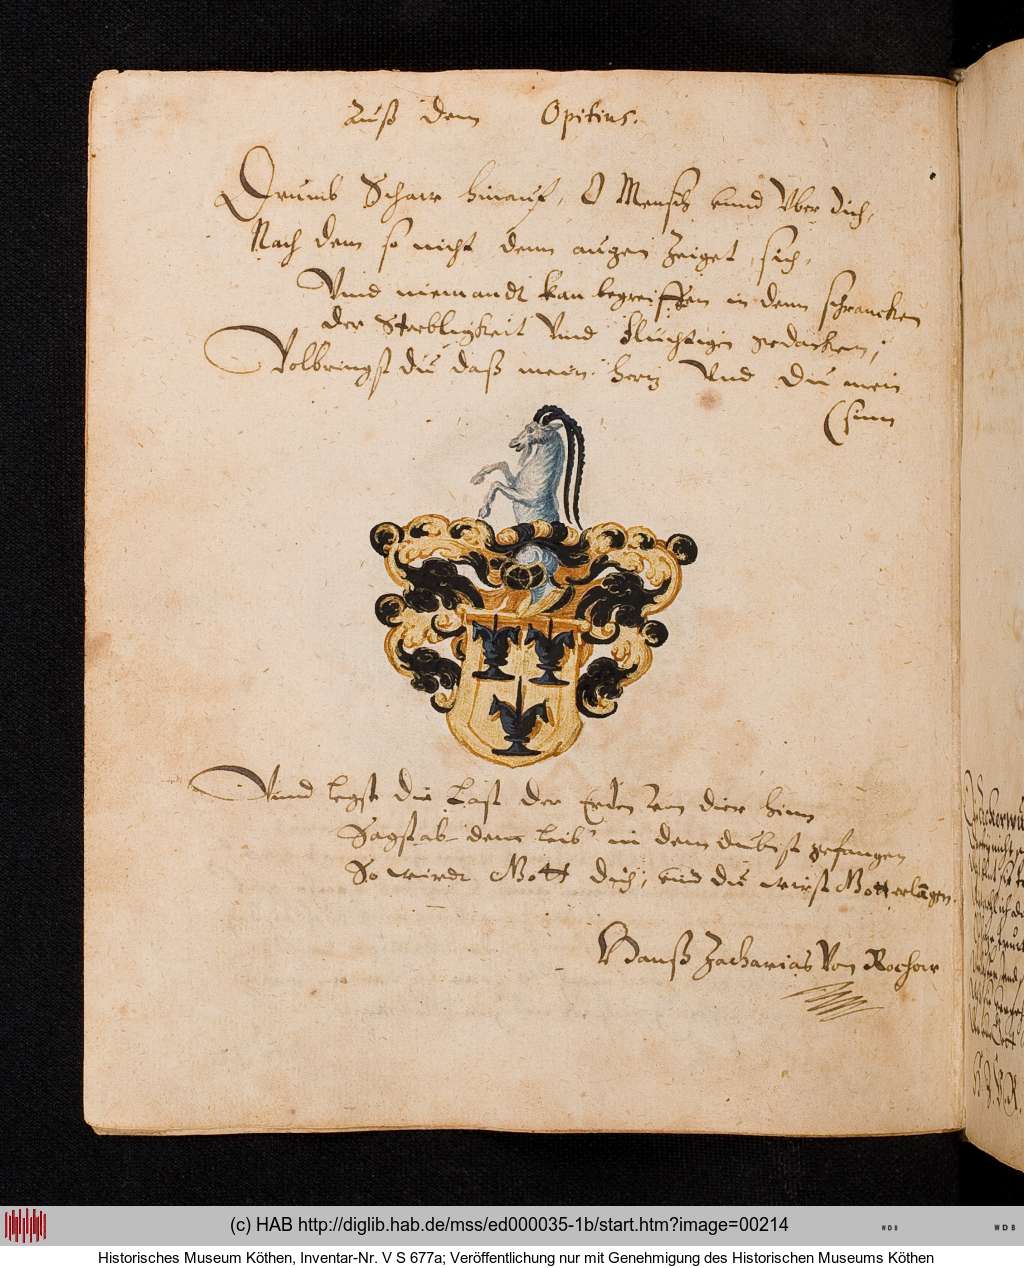 Auß dem Opitius.
Drumb Schaw hinauf, O Mensch vnnd Vber dich,
Nach dem so nicht denn augen Zeiget sich,
Vnnd niemandt kan begreiffen in denn schrancken
der Sterbligkeit Vnnd fluchtigen gedancken,
Volbringst du daß mein hertz Vnd du mein
(sinn
Vnnd legst die Last der Erden von dir hinn
Sagst ab dem leib in dem du bist gefangen
So wirdt Gott dich, vnd du wirst Gott erlangen.
Hanß Zacharias Von Rochow
(c) HAB http://diglib.hab.de/mss/ed000035-1b/start.htm?image=00214
WDB
WDB
Historisches Museum Köthen, Inventar-Nr. V S 677a; Veröffentlichung nur mit Genehmigung des Historischen Museums Köthen